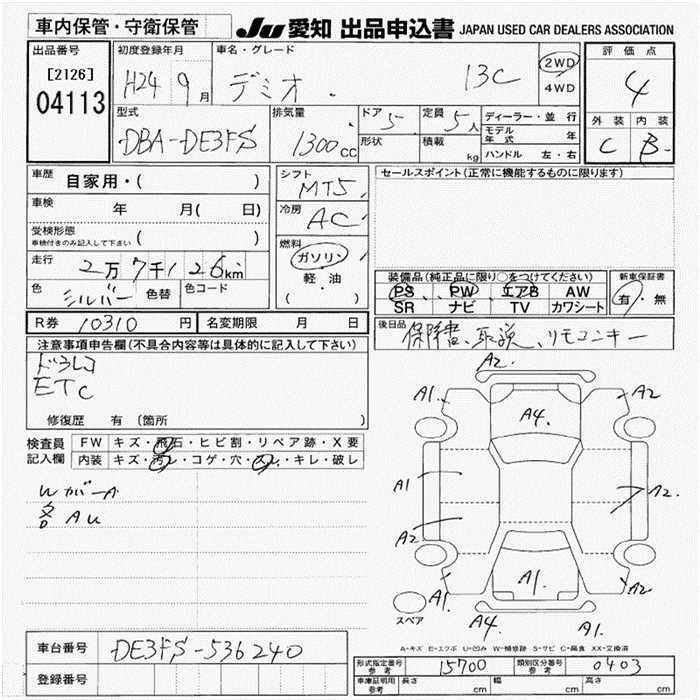 車内保管・守衛保管
JU 愛知 出品申込書 JAPAN USED CAR DEALERS ASSOCIATION
出品番号
[2126]
04113
初度登録年月
H24 9 月
車名・グレード
デミオ 13C
2WD
4WD
評価点
4
外装 内装
C B
型式
DBA-DE3FS
排気量
1300 cc
ドア 5
形状
定員 5 人
積載 kg
ディーラー・並行
モデル年式 年
ハンドル 左・右
車歴 自家用・( )
車検 年 月( 日)
受検形態
車検付きのみ記入して下さい ( )
走行 2万 7千 126 km
色 シルバー 色替 色コード
シフト MT5
冷房 AC
燃料
ガソリン
軽・油
セールスポイント(正常に機能するものに限ります)
装備品(純正品に限り〇をつけてください)
PS PW エアB AW
SR ナビ TV カワシート
新車保証書
有・無
R券 10310 円 名変期限 月 日
後日品 保証書、取説、リモコンキー
注意事項申告欄(不具合内容等は具体的に記入して下さい)
ドラレコ
ETC
修復歴 有 (箇所 )
検査員記入欄
FW キズ・飛石・ヒビ割・リペア跡・X要
内装 キズ・汚レ・コゲ・穴・スレ・キレ・破レ
WガーA
各AU
A2
A1 A4 A2
A1 A2
A2
A1 A1 A2
A4 A1
スペア
A-キズ E-エクボ U-凹み W-補修跡 S-サビ C-腐食 XX-交換済
車台番号 DE3FS-536240
登録番号
形式指定番号 参考 15700 類別区分番号 参考 0403
車庫証明用 参考 長さ cm 幅 cm 高さ cm